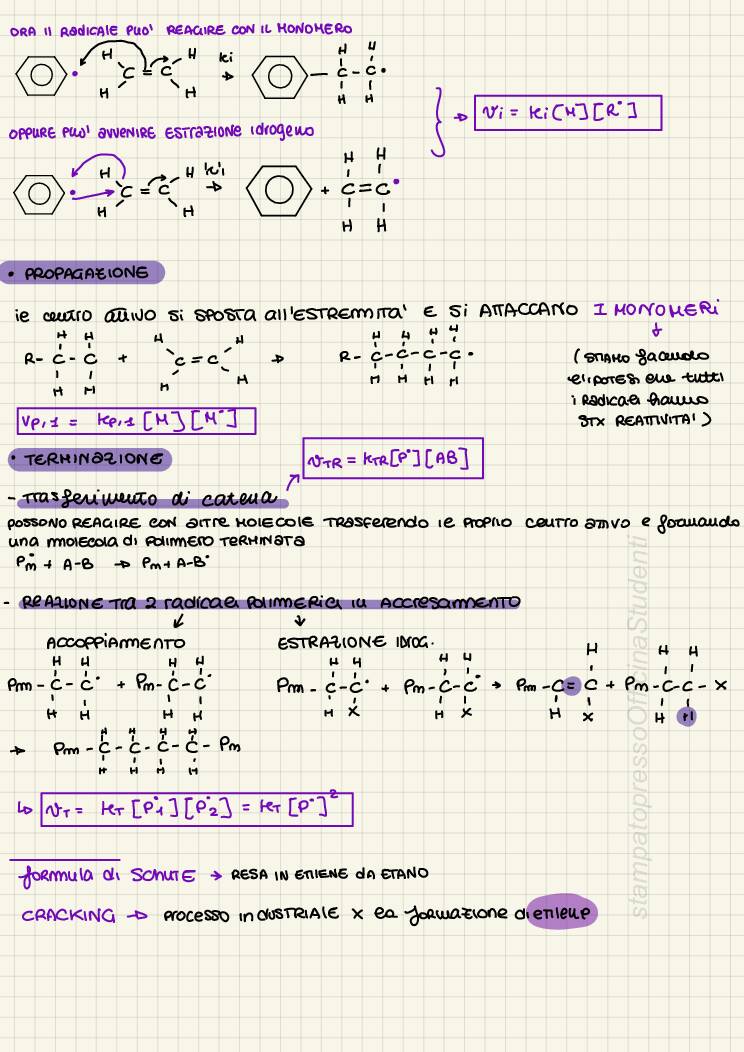 ORA Il RADICALE PUO' REAGIRE CON IL MONOMERO
H H H H
C = C ki → C - C •
H H H H
} → vi = ki [M] [R•]
OPPURE PUO' AVVENIRE ESTRAZIONE IdROGENO
H H H H
• C = C ki' → + C = C •
H H H H
• PROPAGAZIONE
il centro attivo si SPOSTA all'ESTREMITA' E Si ATTACCANO I MONOMERI
H H H H H H H H
R - C - C + C = C → R - C - C - C - C •
H H H H H H H H
(STIAMO facendo
l'IPOTESI che tutti
i Radicali hanno
STX REATTIVITA')
Vp,1 = kp,1 [M] [M•]
• TERMINAZIONE
vTR = kTR [P•] [AB]
- Trasferimento di catena
POSSONO REAGIRE CON altRE MOLECOLE TRASFERENDO il PROPRIO CENTRO attivo e formando
una molecola di POLIMERO TERMINATA
Pm• + A-B → Pm + A-B•
- REAZIONE TRA 2 radicali POLIMERICI in ACCRESCIMENTO
ACCOPPIAMENTO ESTRAZIONE IDROG.
H H H H H H H H H H H
Pm - C - C• + Pm - C - C• Pm - C - C• + Pm - C - C• → Pm - C = C + Pm - C - C - X
H H H H H X H X H X H H
H H H H
→ Pm - C - C - C - C - Pm
H H H H
↳ vT = kT [P•1] [P•2] = kT [P•]²
formula di SCHUTE → RESA IN ETILENE DA ETANO
CRACKING → PROCESSO INDUSTRIALE X la formazione di etilene
stampatopressoOfficinaStudenti